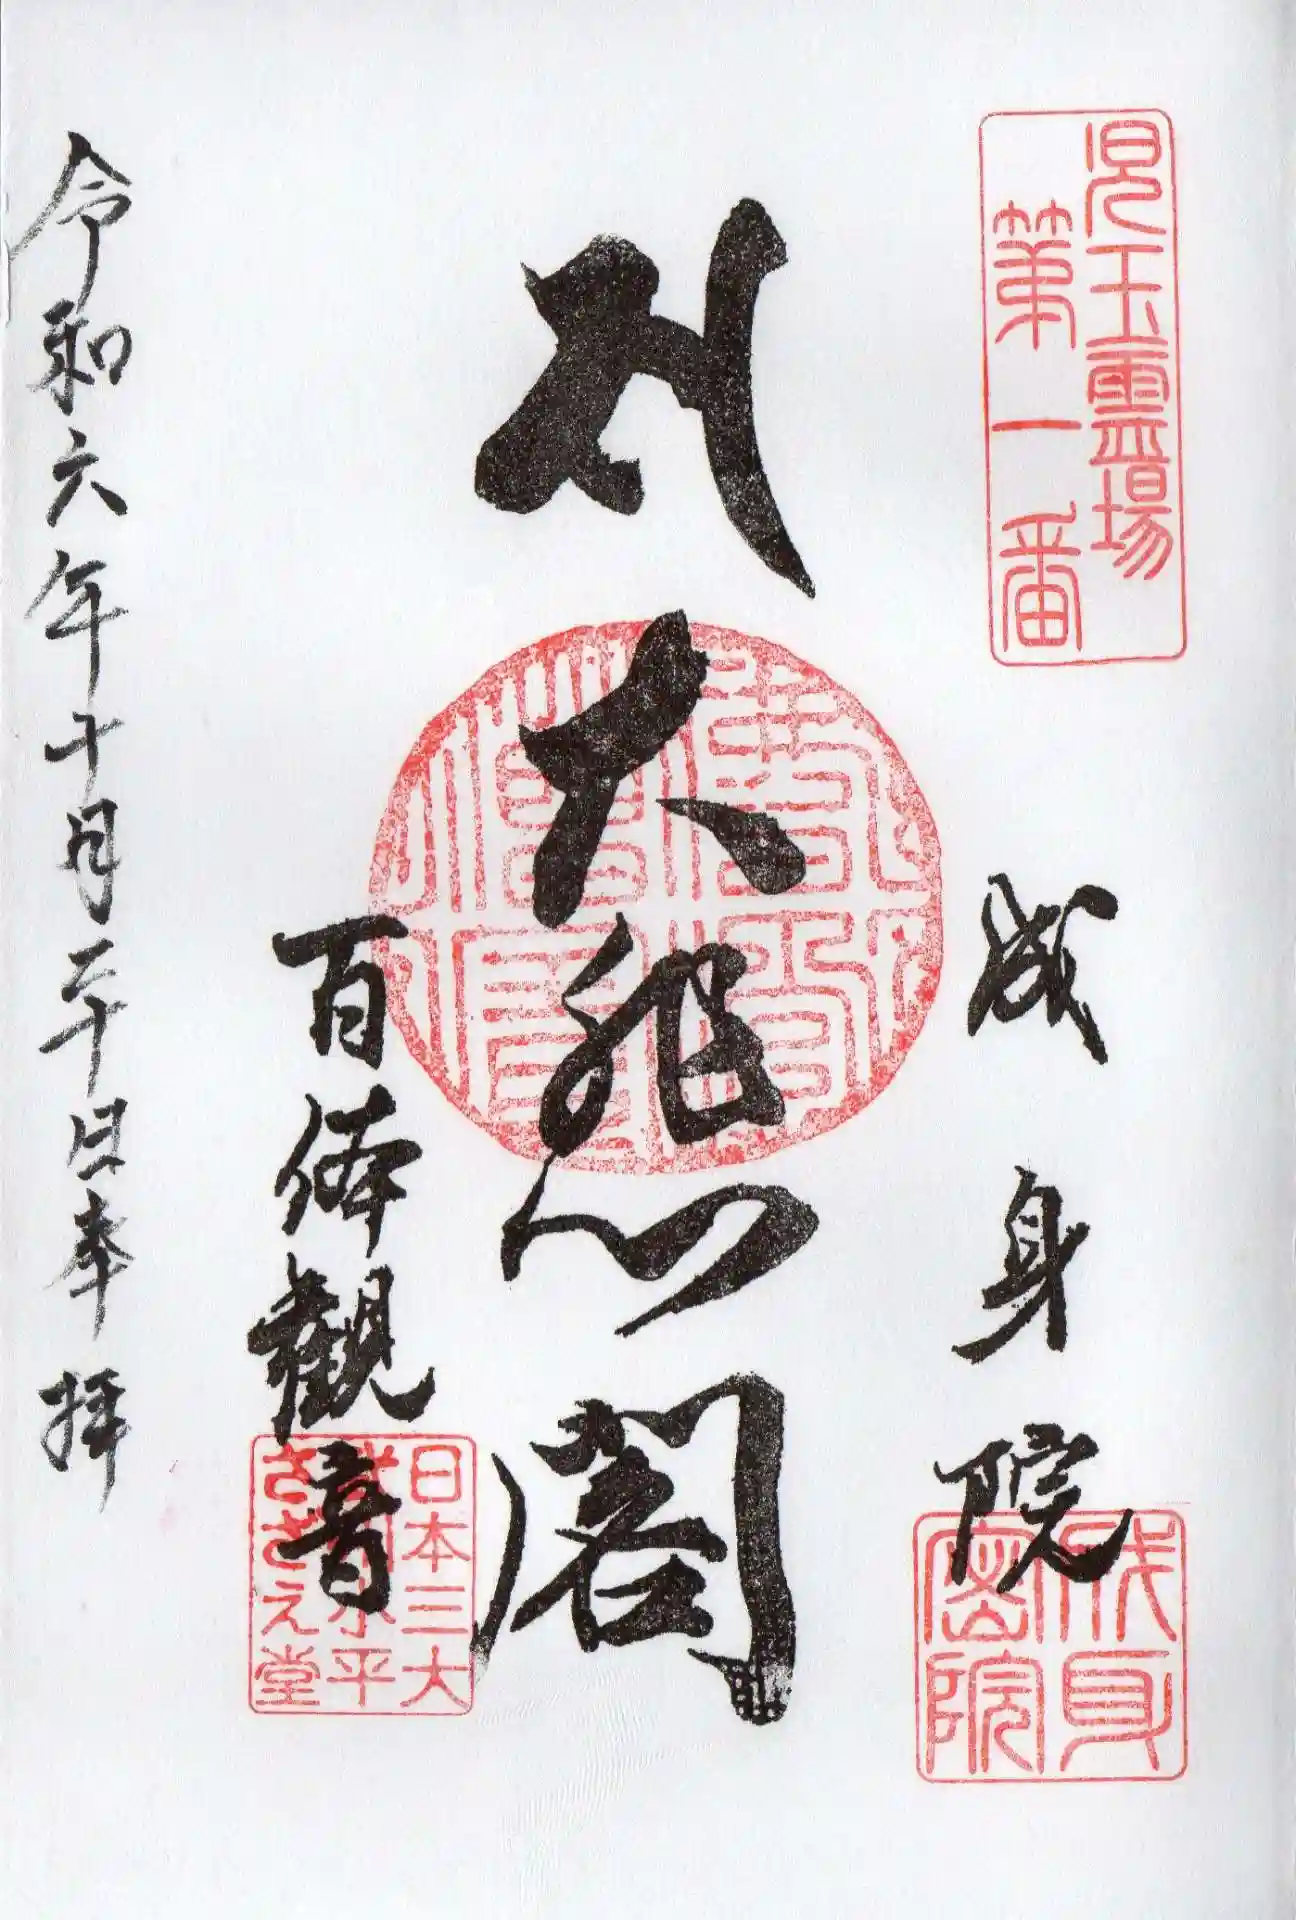 児玉霊場
第一番
成身院
成身
密院
大悲閣
百体觀音
日本三大
さざえ堂
令和六年十月二十日奉拝